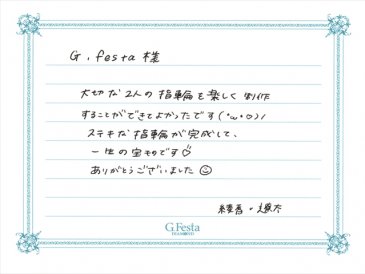 G.festa 様
大切な2人の指輪を楽しく制作
することができてよかったです(・ω・)ノ
ステキな指輪が完成して、
一生の宝ものです♡
ありがとうございました☺
G.Festa